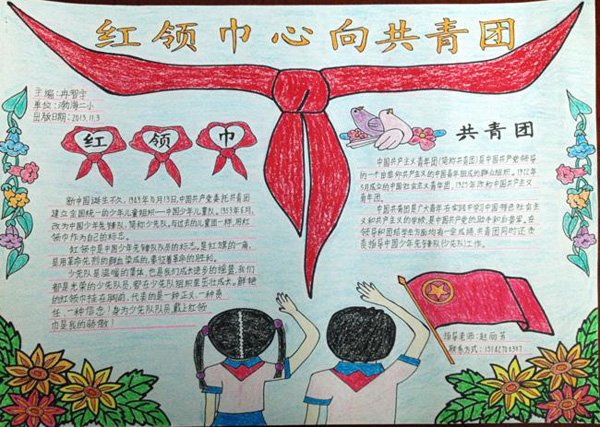 红领巾心向共青团
主编：冉智宇
单位：渤海二小
出版日期：2015.11.3
红 领 巾
新中国诞生不久，1949年10月13日，中国共产党委托共青团
建立全国统一的少年儿童组织——中国少年儿童队。1953年6月，
改为中国少年先锋队，简称少先队，与过去的儿童团一样，用红
领巾作为自己的标志。
红领巾是中国少年先锋队队员的标志，是红旗的一角，
是用革命先烈的鲜血染成的，象征着革命的胜利。
少先队是温暖的集体，也是我们成长进步的摇篮，我们
都是光荣的少先队员，都在少先队组织里茁壮成长。鲜艳
的红领巾挂在胸前，代表的是一种正义，一种责
任，一种信念！身为少先队员，戴上红领
巾是我的骄傲！
共青团
中国共产主义青年团（简称共青团）是中国共产党领导
的一个由信仰共产主义的中国青年组成的群众组织。1922年
5月成立的中国社会主义青年团，1925年改称中国共产主义
青年团。
中国共青团是广大青年在实践中学习中国特色社会
主义和共产主义的学校，是中国共产党的助手和后备军。在
领导和团结学生方面均有一定成绩，共青团同时还负
责指导中国少年先锋队（少先队）工作。
指导老师：赵丽芳
联系方式：